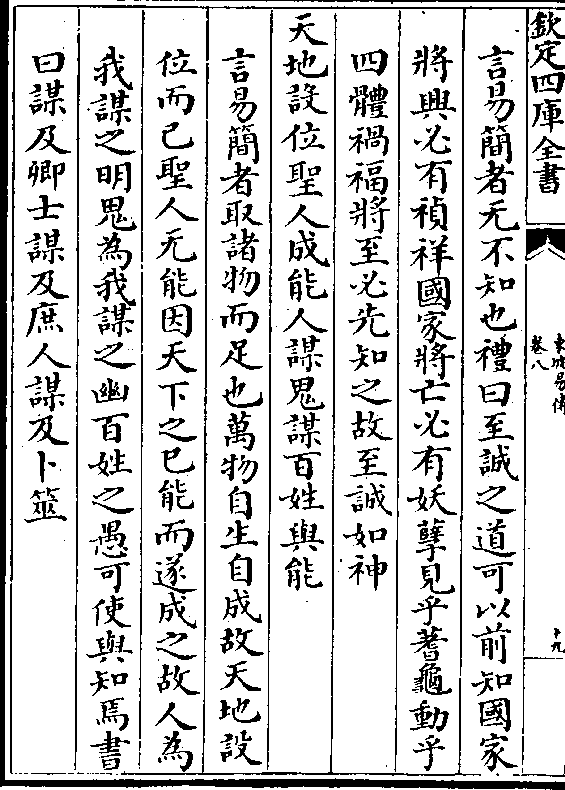 欽定四庫全書
東坡易傳
卷八
十九
言易簡者无不知也禮曰至誠之道可以前知國家
將興必有禎祥國家將亡必有妖孽見乎蓍龜動乎
四體禍福將至必先知之故至誠如神
天地設位聖人成能人謀鬼謀百姓與能
言易簡者取諸物而足也萬物自生自成故天地設
位而已聖人无能因天下之已能而遂成之故人為
我謀之明鬼為我謀之幽百姓之愚可使與知焉書
曰謀及卿士謀及庶人謀及卜筮